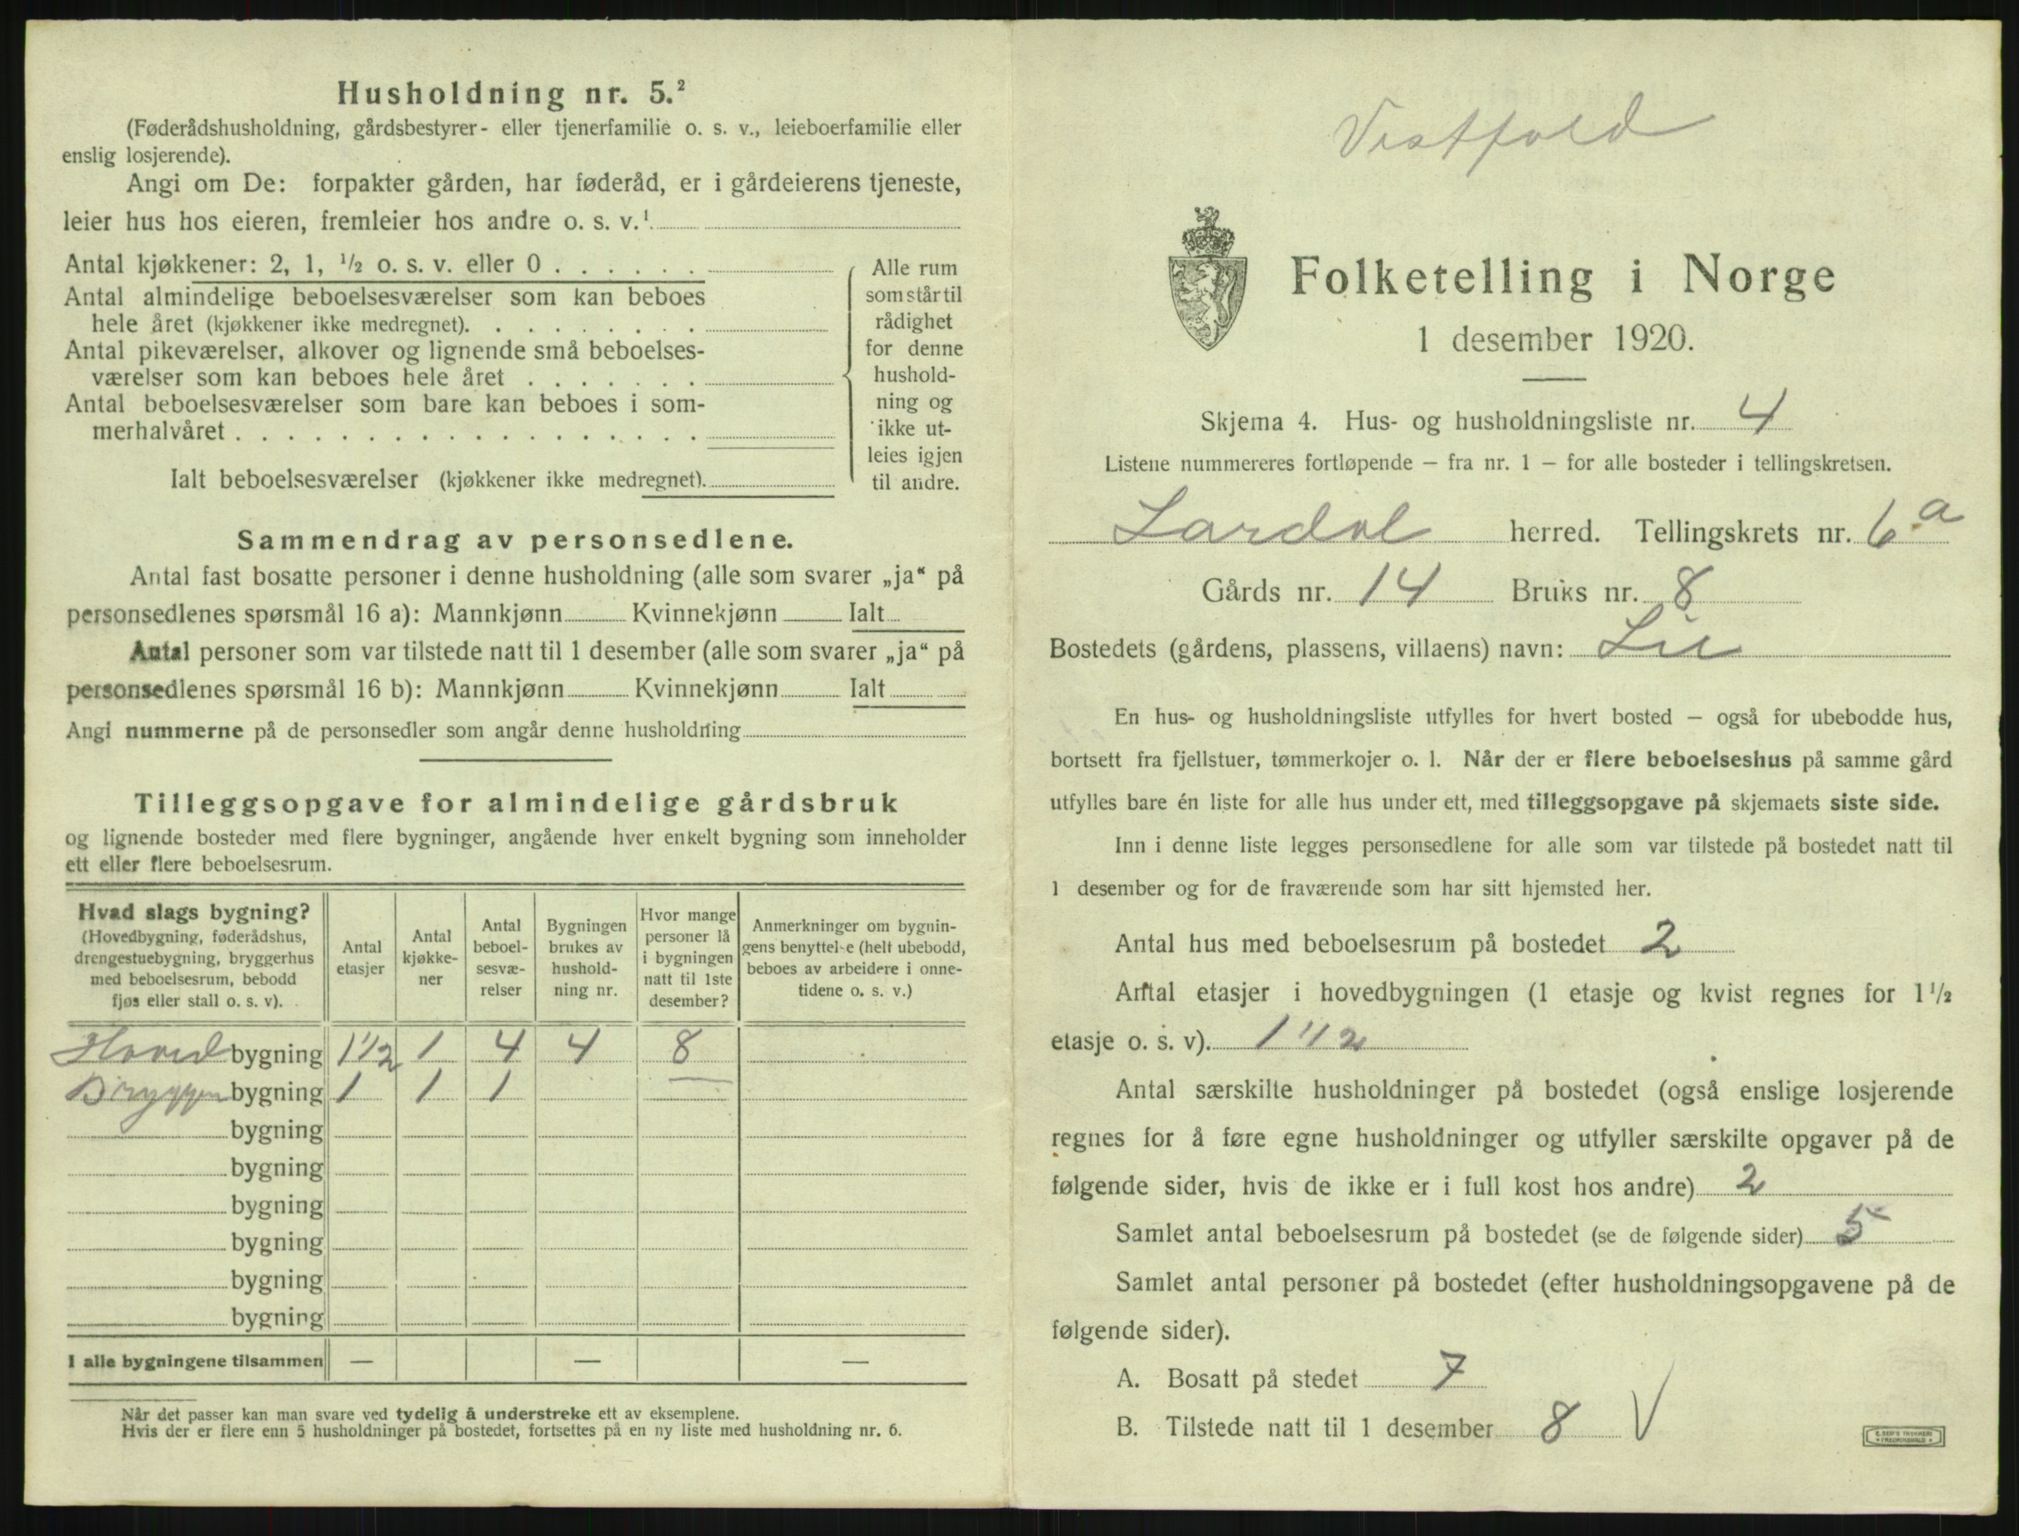 Husholdning nr. 5.²
(Føderådshusholdning, gårdsbestyrer- eller tjenerfamilie o. s. v., leieboerfamilie eller
enslig losjerende).
Angi om De: forpakter gården, har føderåd, er i gårdeierens tjeneste,
leier hus hos eieren, fremleier hos andre o. s. v.¹
Antal kjøkkener: 2, 1, ½ o. s. v. eller 0 . . . . . .
Antal almindelige beboelsesværelser som kan beboes
hele året (kjøkkener ikke medregnet). . . . . . . . .
Antal pikeværelser, alkover og lignende små beboelses-
værelser som kan beboes hele året . . . . . . .
Antal beboelsesværelser som bare kan beboes i som-
merhalvåret . . . . . . . . . . . . . . . . . .
Ialt beboelsesværelser (kjøkkener ikke medregnet).
Alle rum
som står til
rådighet
for denne
hushold-
ning og
ikke ut-
leies igjen
til andre.
Sammendrag av personsedlene.
Antal fast bosatte personer i denne husholdning (alle som svarer „ja“ på
personsedlenes spørsmål 16 a): Mannkjønn Kvinnekjønn Ialt
Antal personer som var tilstede natt til 1 desember (alle som svarer „ja“ på
personsedlenes spørsmål 16 b): Mannkjønn Kvinnekjønn Ialt
Angi nummerne på de personsedler som angår denne husholdning
Tilleggsopgave for almindelige gårdsbruk
og lignende bosteder med flere bygninger, angående hver enkelt bygning som inneholder
ett eller flere beboelsesrum.
Hvad slags bygning?
(Hovedbygning, føderådshus,
drengestuebygning, bryggerhus
med beboelsesrum, bebodd
fjøs eller stall o. s. v).
Antal
etasjer
Antal
kjøkke-
ner
Antal
beboel-
sesvæ-
relser
Bygningen
brukes av
hushold-
ning nr.
Hvor mange
personer lå
i bygningen
natt til 1ste
desember?
Anmerkninger om bygnin-
gens benyttelse (helt ubebodd,
beboes av arbeidere i onne-
tidene o. s. v.)
Hoved bygning 1 1/2 1 4 4 8
Bryggen bygning 1 1 1 —
bygning
bygning
bygning
bygning
bygning
bygning
I alle bygningene tilsammen — — —
Når det passer kan man svare ved tydelig å understreke ett av eksemplene.
Hvis der er flere enn 5 husholdninger på bostedet, fortsettes på en ny liste med husholdning nr. 6.
Vestfold
Folketelling i Norge
1 desember 1920.
Skjema 4. Hus- og husholdningsliste nr. 4
Listene nummereres fortløpende — fra nr. 1 — for alle bosteder i tellingskretsen.
Lardal herred. Tellingskrets nr. 6a
Gårds nr. 14 Bruks nr. 8
Bostedets (gårdens, plassens, villaens) navn: Lie
En hus- og husholdningsliste utfylles for hvert bosted — også for ubebodde hus,
bortsett fra fjellstuer, tømmerkojer o. l. Når der er flere beboelseshus på samme gård
utfylles bare én liste for alle hus under ett, med tilleggsopgave på skjemaets siste side.
Inn i denne liste legges personsedlene for alle som var tilstede på bostedet natt til
1 desember og for de fraværende som har sitt hjemsted her.
Antal hus med beboelsesrum på bostedet 2
Antal etasjer i hovedbygningen (1 etasje og kvist regnes for 1½
etasje o. s. v). 1 1/2
Antal særskilte husholdninger på bostedet (også enslige losjerende
regnes for å føre egne husholdninger og utfyller særskilte opgaver på de
følgende sider, hvis de ikke er i full kost hos andre) 2
Samlet antal beboelsesrum på bostedet (se de følgende sider) 5
Samlet antal personer på bostedet (efter husholdningsopgavene på de
følgende sider).
A. Bosatt på stedet 7
B. Tilstede natt til 1 desember 8 V